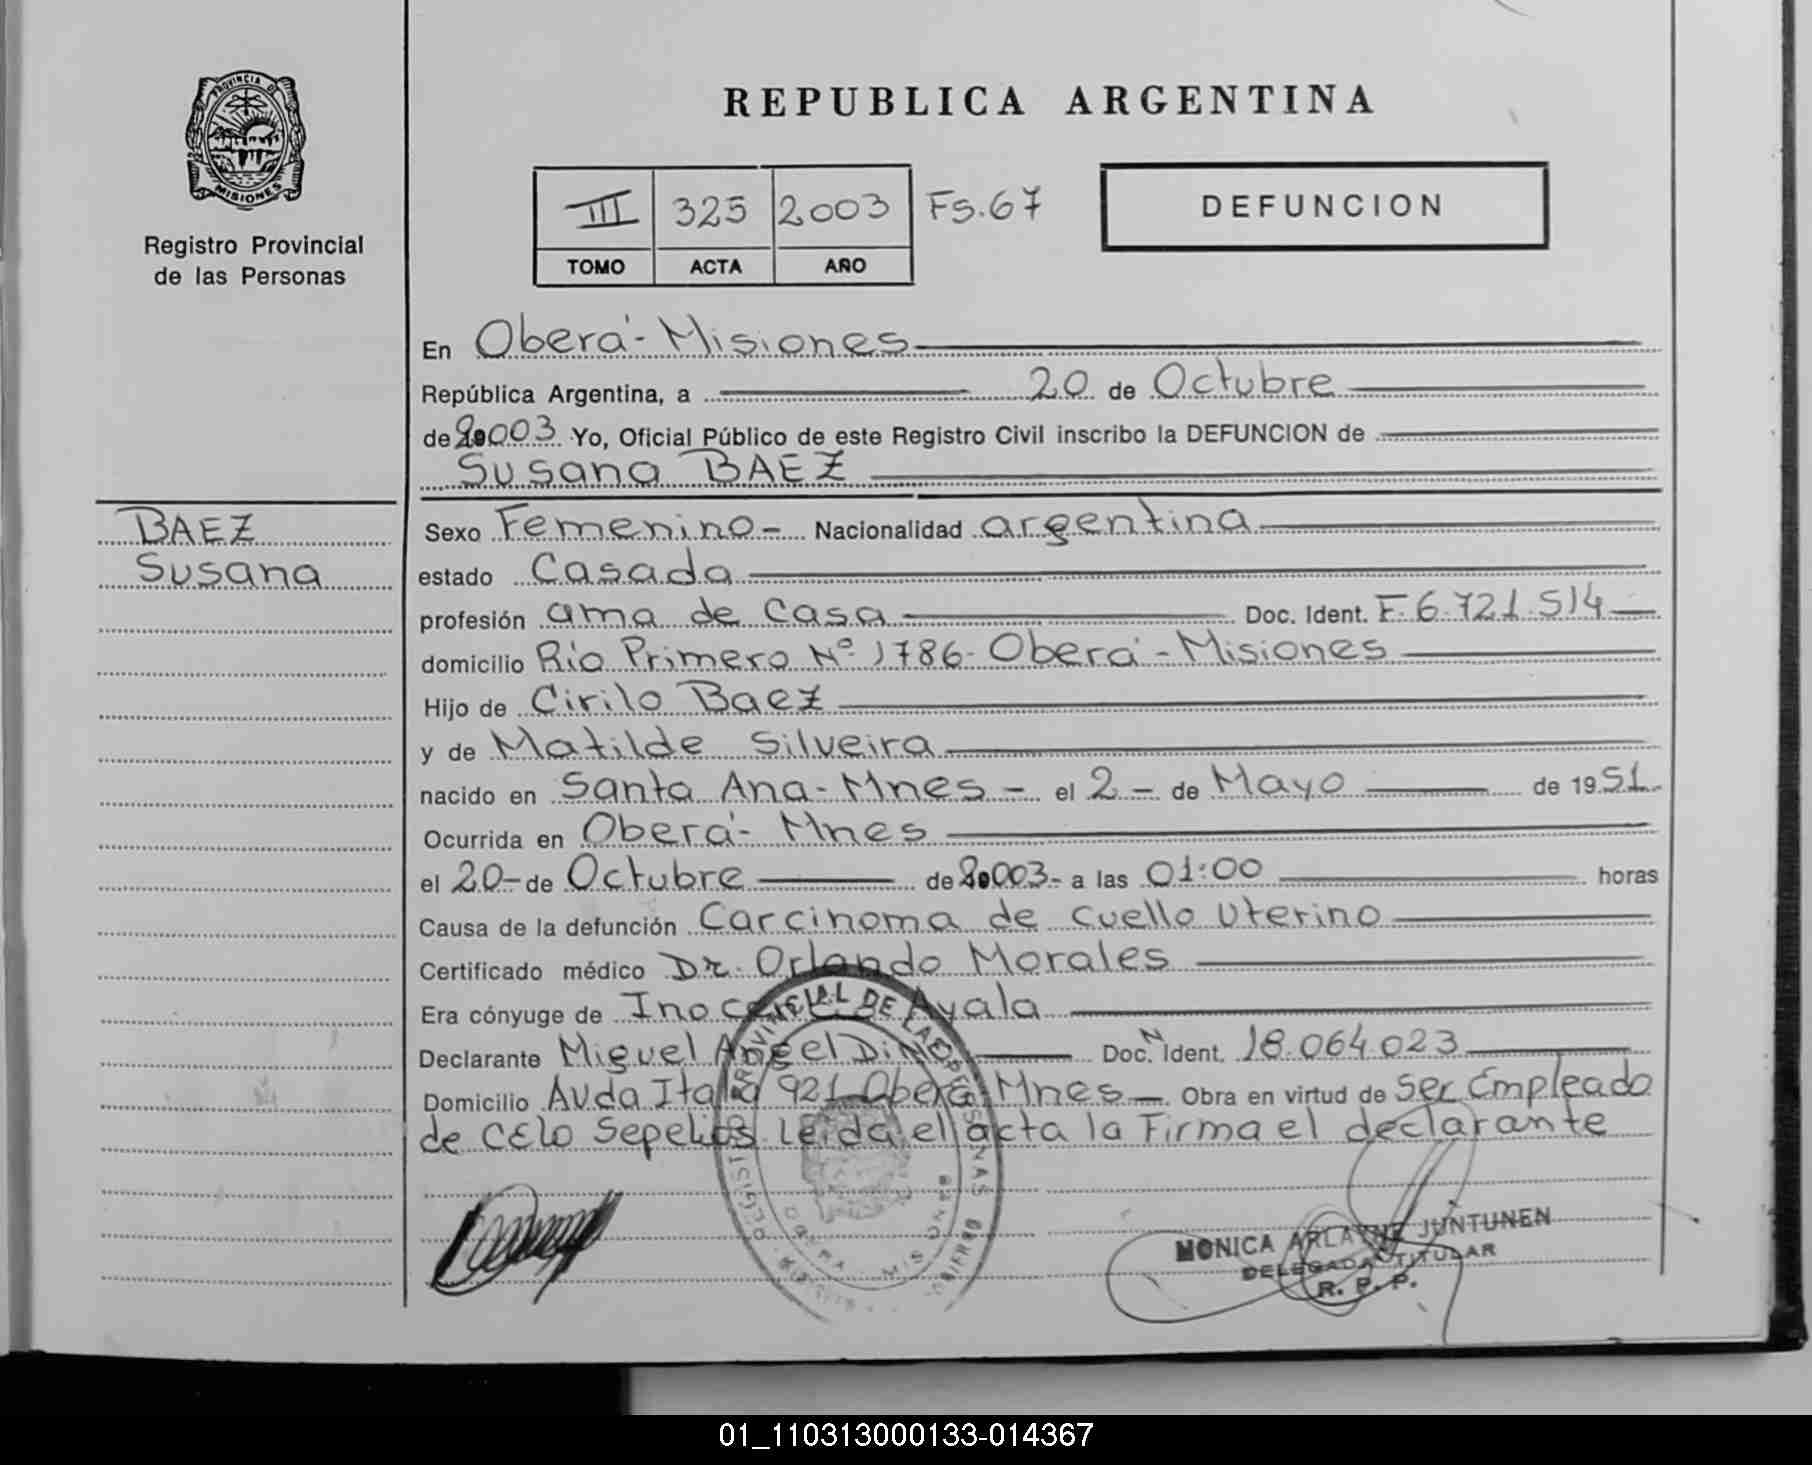 PROVINCIA DE
MISIONES
Registro Provincial
de las Personas
REPUBLICA ARGENTINA
III 325 2003 Fs. 67
TOMO ACTA AÑO
DEFUNCION
En Oberá - Misiones
República Argentina, a 20 de Octubre
de 2003 Yo, Oficial Público de este Registro Civil inscribo la DEFUNCION de
Susana BAEZ
BAEZ
Susana
Sexo Femenino - Nacionalidad argentina
estado Casada
profesión ama de casa Doc. Ident. F. 6.721.514
domicilio Río Primero Nº 1786 - Oberá - Misiones
Hijo de Cirilo Baez
y de Matilde Silveira
nacido en Santa Ana - Mnes - el 2 - de Mayo de 1951
Ocurrida en Oberá - Mnes
el 20 - de Octubre de 2003 - a las 01:00 horas
Causa de la defunción Carcinoma de cuello uterino
Certificado médico Dr. Orlando Morales
Era cónyuge de Ayala
Declarante Miguel Angel Doc. N Ident. 18.064.023
Domicilio Avda Italia 921 Oberá - Mnes Obra en virtud de Ser Empleado
de CELO Sepelios Leída el acta la Firma el declarante
MONICA ARLAYNE JUNTUNEN
DELEGADA TITULAR
R. P. P.
01_110313000133-014367